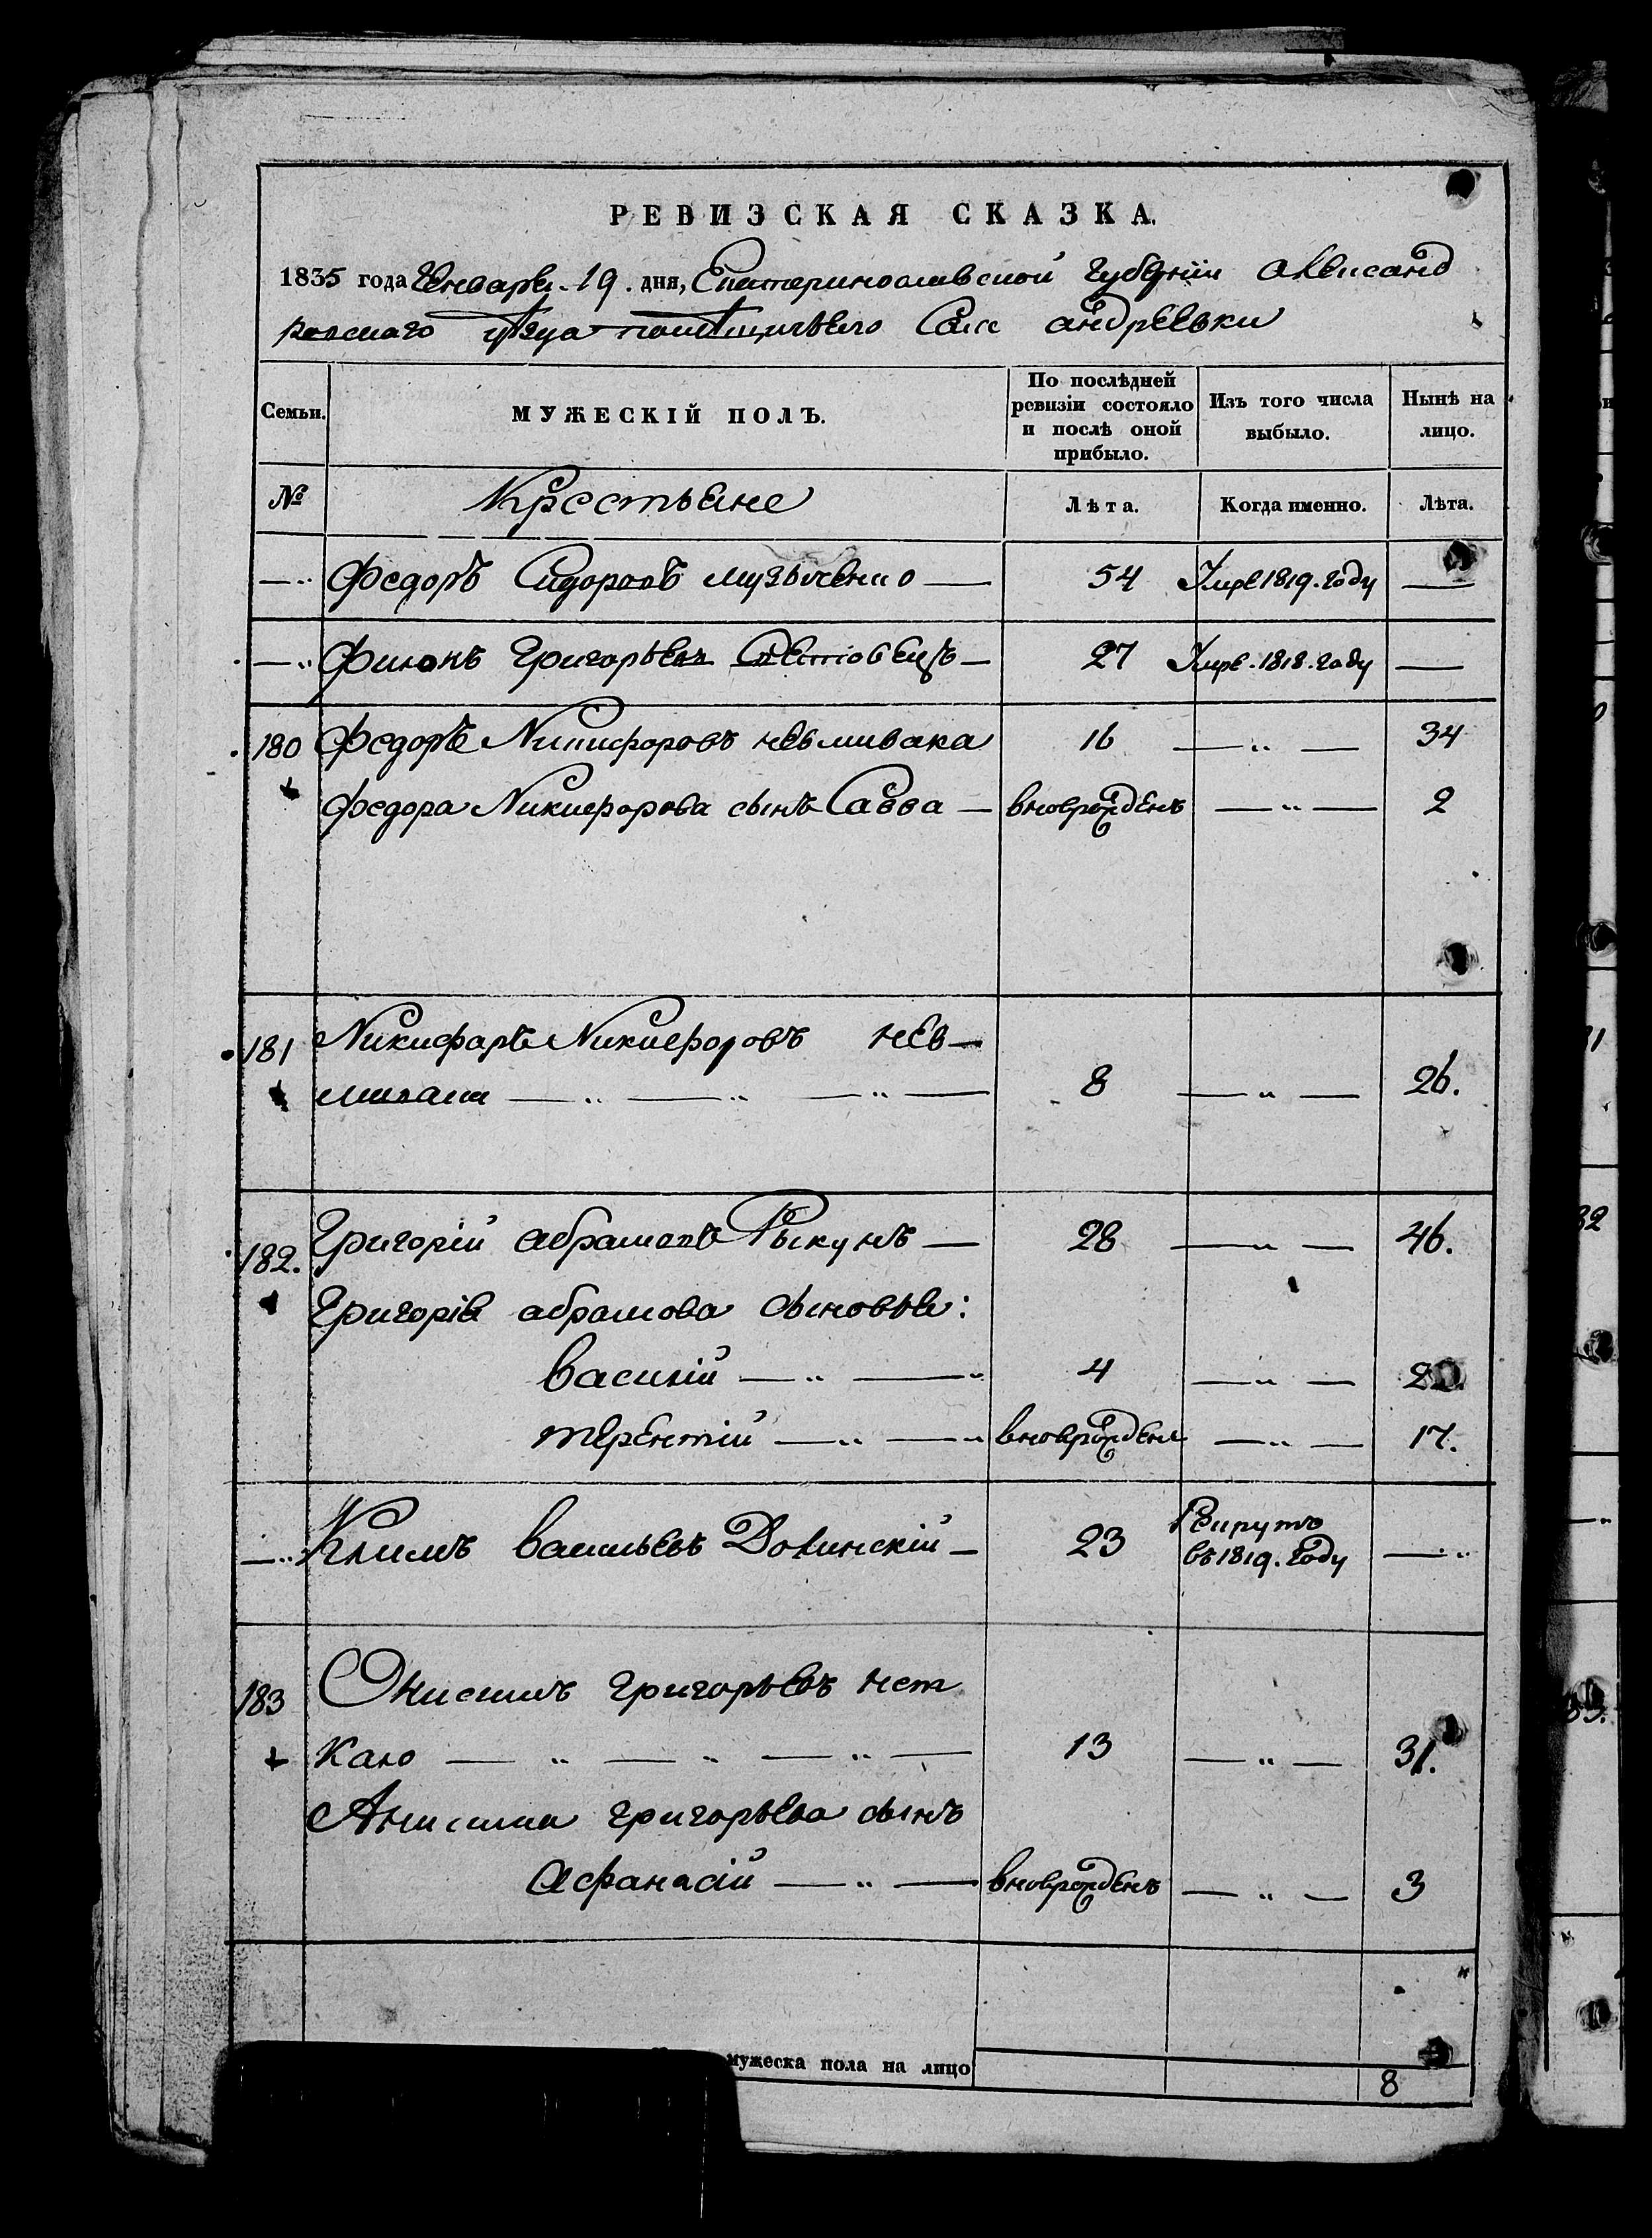 РЕВИЗСКАЯ СКАЗКА.
1835 года Генваря 19. дня, Екатеринославской губерніи Александ
ровского уѣзда помѣщичьего Села андреевки
Семьи. МУЖЕСКІЙ ПОЛЪ. По послѣдней ревизіи состояло и послѣ оной прибыло. Изъ того числа выбыло. Нынѣ на лицо.
№ Крестьяне Лѣта. Когда именно. Лѣта.
—„ Федоръ Сидоровъ музыченко — 54 Умре 1819. году —
—„ Филонъ Григорьевъ — 27 Умре. 1818. году —
180 Федоръ Никифоровъ невмивака 16 —„— 34
Федора Никифорова сынъ Савва — вноврожденъ —„— 2
181 Никифоръ Никифоровъ нев—
мивака —„—„—„— 8 —„— 26.
182. Григорій абрамовъ Рыкунъ — 28 —„— 46.
Григорія абрамова сыновья:
василій —„—„ 4 —„— 22.
терентій —„—„ вноврожденъ —„— 17.
—„ Климъ васильевъ Долинскій — 23 Рекрутъ въ 1819. году —„
183 Онисимъ григорьевъ нет
кало —„—„—„— 13 —„— 31.
Анисима григорьева сынъ
Афанасій —„— вноврожденъ —„— 3
мужеска пола на лицо 8